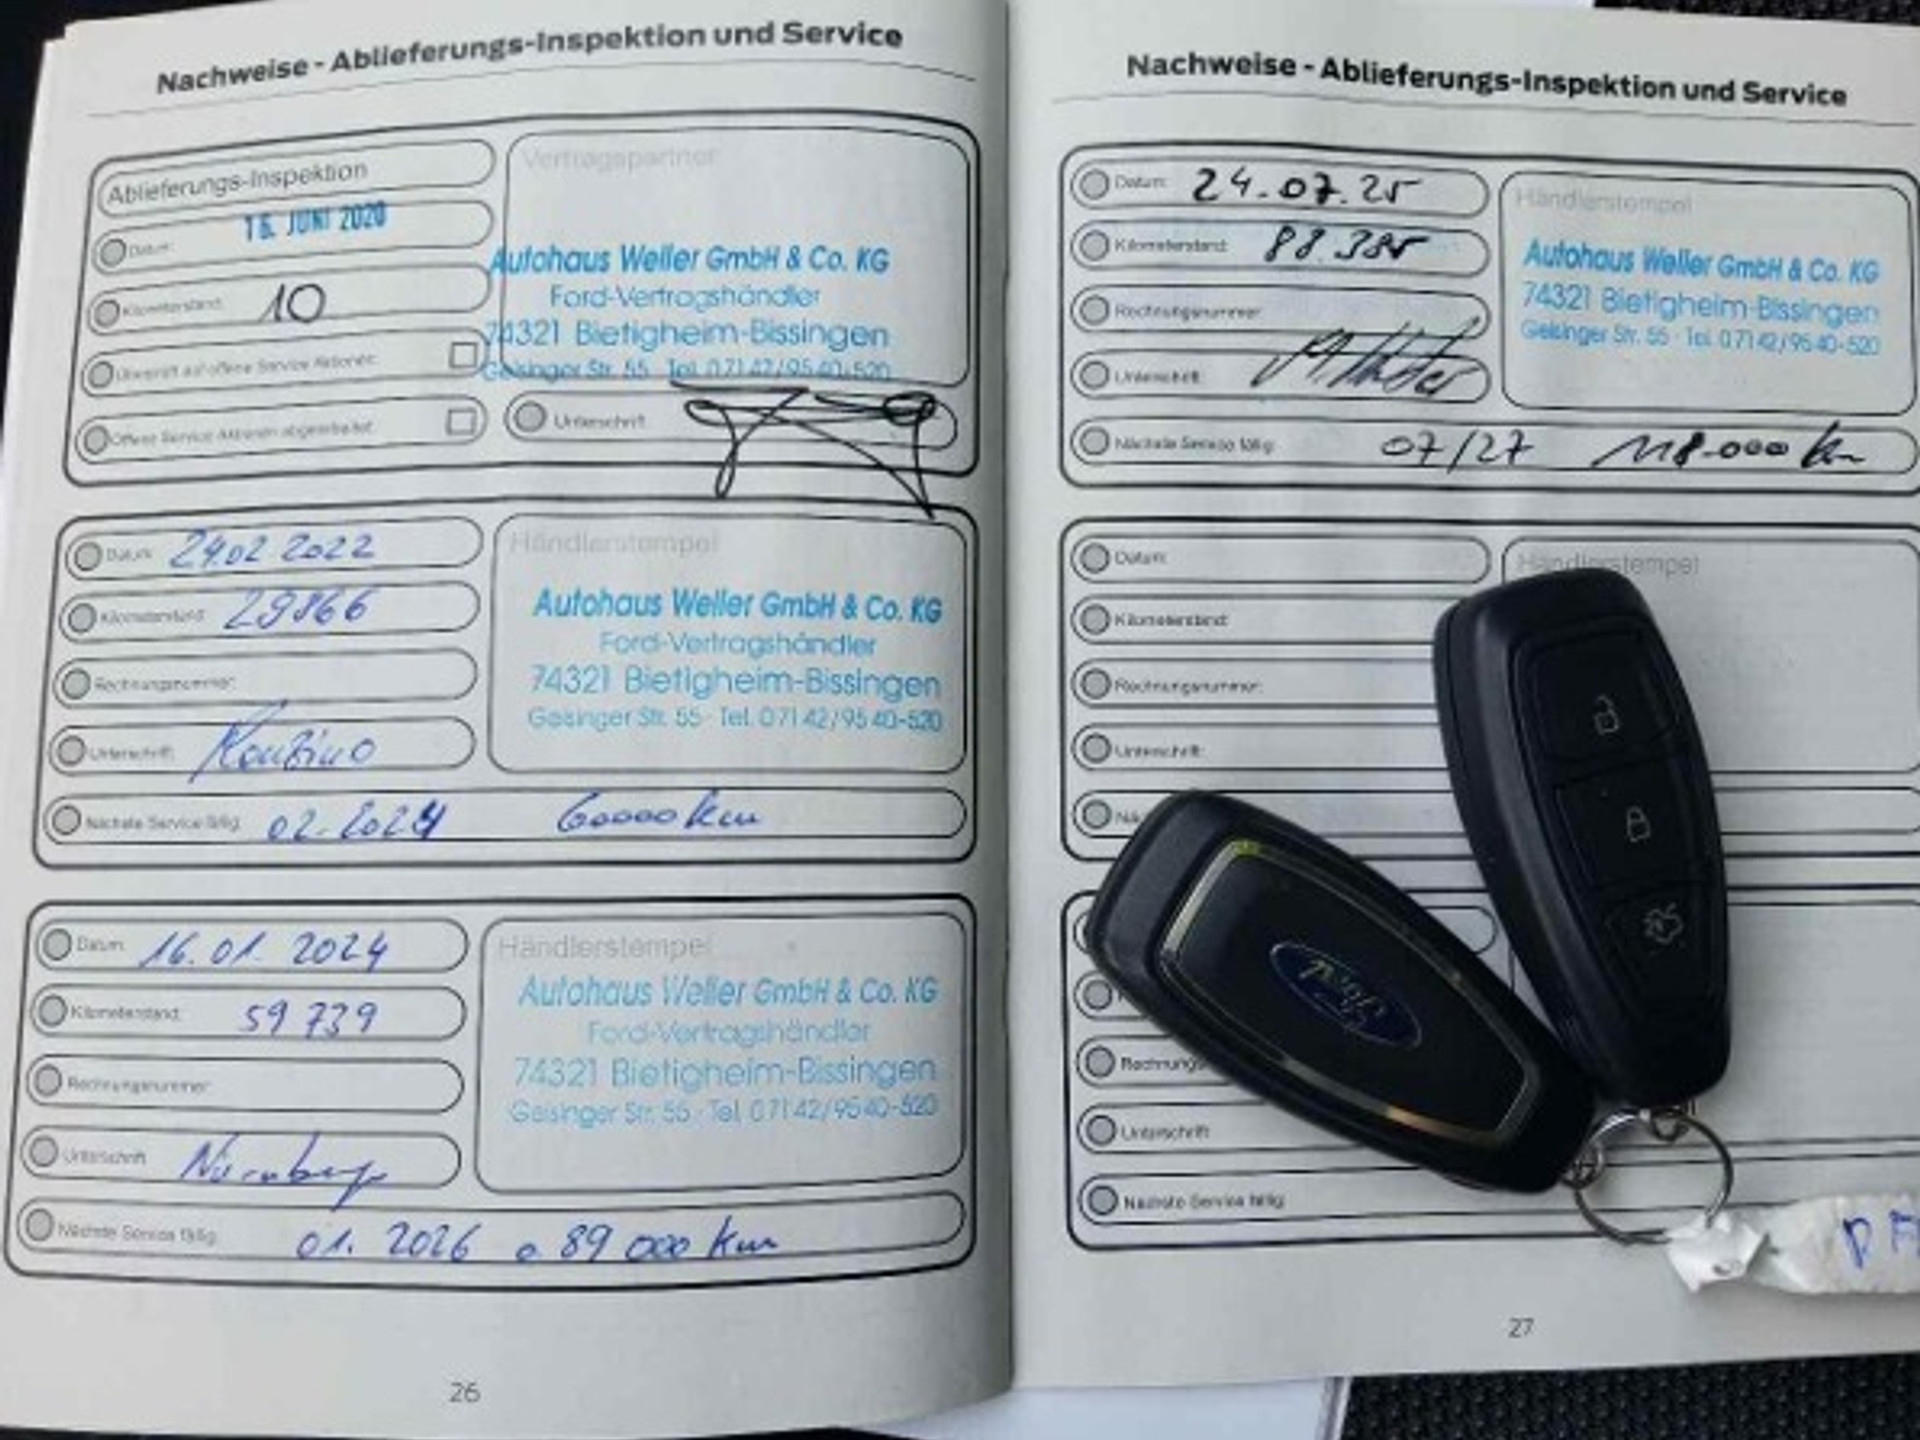 Nachweise - Ablieferungs-Inspektion und Service
Ablieferungs-Inspektion
Datum: 16. JUNI 2020
Kilometerstand: 10
Überprüft auf offene Service Aktionen:
Offene Service Aktionen abgearbeitet:
Vertragspartner
Autohaus Weller GmbH & Co. KG
Ford-Vertragshändler
74321 Bietigheim-Bissingen
Geisinger Str. 55 · Tel. 07142/9540-520
Unterschrift:
Datum: 24.02 2022
Kilometerstand: 29866
Rechnungsnummer:
Unterschrift:
Nächste Service fällig: 02.2024 60000 km
Händlerstempel
Autohaus Weller GmbH & Co. KG
Ford-Vertragshändler
74321 Bietigheim-Bissingen
Geisinger Str. 55 · Tel. 07142/9540-520
Datum: 16.01.2024
Kilometerstand: 59 739
Rechnungsnummer:
Unterschrift: Nürnberg
Nächste Service fällig: 01.2026 o 89 000 km
Händlerstempel
Autohaus Weller GmbH & Co. KG
Ford-Vertragshändler
74321 Bietigheim-Bissingen
Geisinger Str. 55 · Tel. 07142/9540-520
26
Nachweise - Ablieferungs-Inspektion und Service
Datum: 24.07.25
Kilometerstand: 88.385
Rechnungsnummer:
Unterschrift:
Nächste Service fällig: 07/27 118.000 km
Händlerstempel
Autohaus Weller GmbH & Co. KG
74321 Bietigheim-Bissingen
Geisinger Str. 55 · Tel. 07142/9540-520
Datum:
Kilometerstand:
Rechnungsnummer:
Unterschrift:
Händlerstempel
Ford
Unterschrift:
Nächste Service fällig:
27